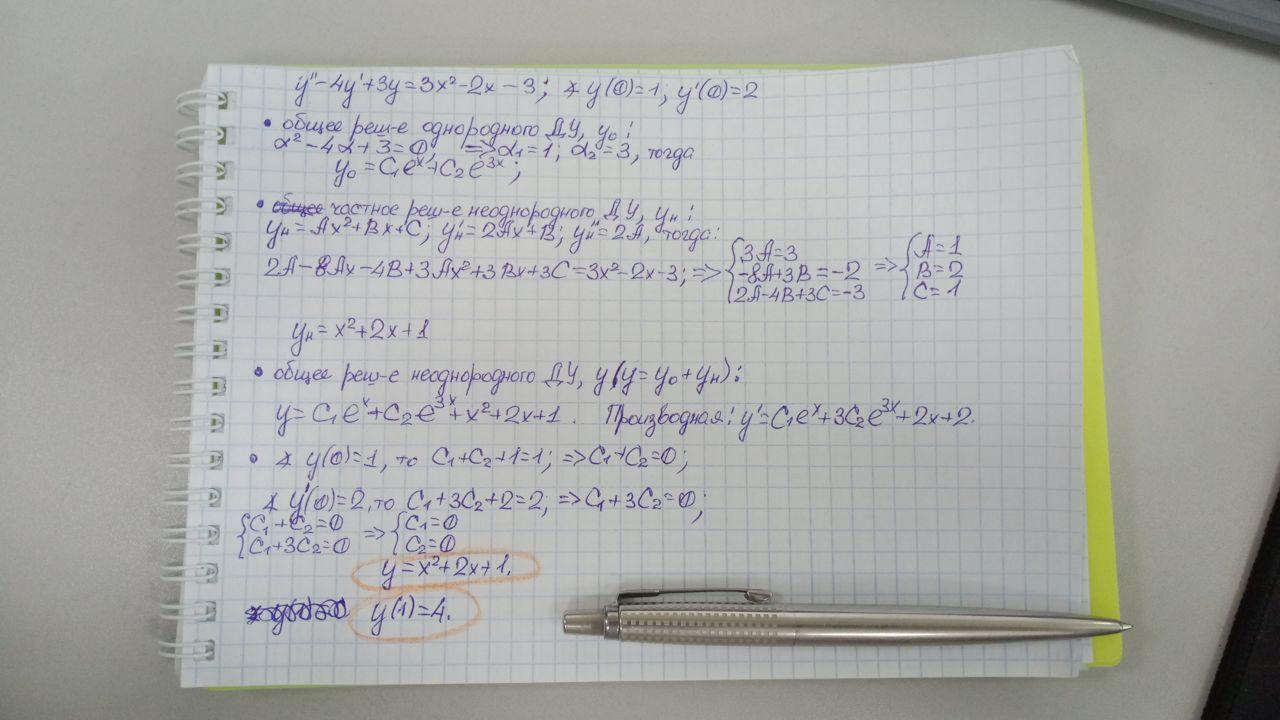 y''-4y'+3y=3x²-2x-3; ∢ y(0)=1; y'(0)=2
• общее реш-е однородного ДУ, y₀:
α²-4α+3=0; =>α₁=1; α₂=3, тогда
y₀=C₁eˣ+C₂e³ˣ;
• общее частное реш-е неоднородного ДУ, yн:
yн=Ax²+Bx+C; y'н=2Ax+B; y''н=2A, тогда:
2A-8Ax-4B+3Ax²+3Bx+3C=3x²-2x-3; => { 3A=3 -8A+3B=-2 2A-4B+3C=-3 => { A=1 B=2 C=1
yн=x²+2x+1
• общее реш-е неоднородного ДУ, y (y=y₀+yн):
y=C₁eˣ+C₂e³ˣ+x²+2x+1. Производная: y'=C₁eˣ+3C₂e³ˣ+2x+2.
• ∢ y(0)=1, то C₁+C₂+1=1; =>C₁+C₂=0;
∢ y'(0)=2, то C₁+3C₂+2=2; =>C₁+3C₂=0;
{ C₁+C₂=0 C₁+3C₂=0 => { C₁=0 C₂=0
y=x²+2x+1.
y(1)=4.